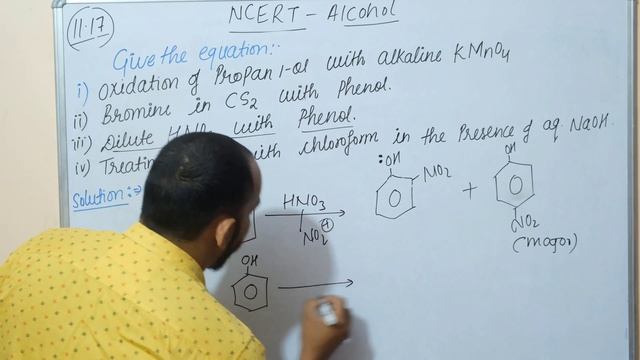 11.17
NCERT - Alcohol
Give the equation:-
i) Oxidation of Propan 1-ol with alkaline KMnO4
ii) Bromine in CS2 with Phenol.
iii) Dilute HNO3 with Phenol.
iv) Treatin with chloroform in the Presence of aq. NaOH.
Solution:→
HNO3
NO2 +
:OH
NO2
+
OH
NO2
(major)
OH